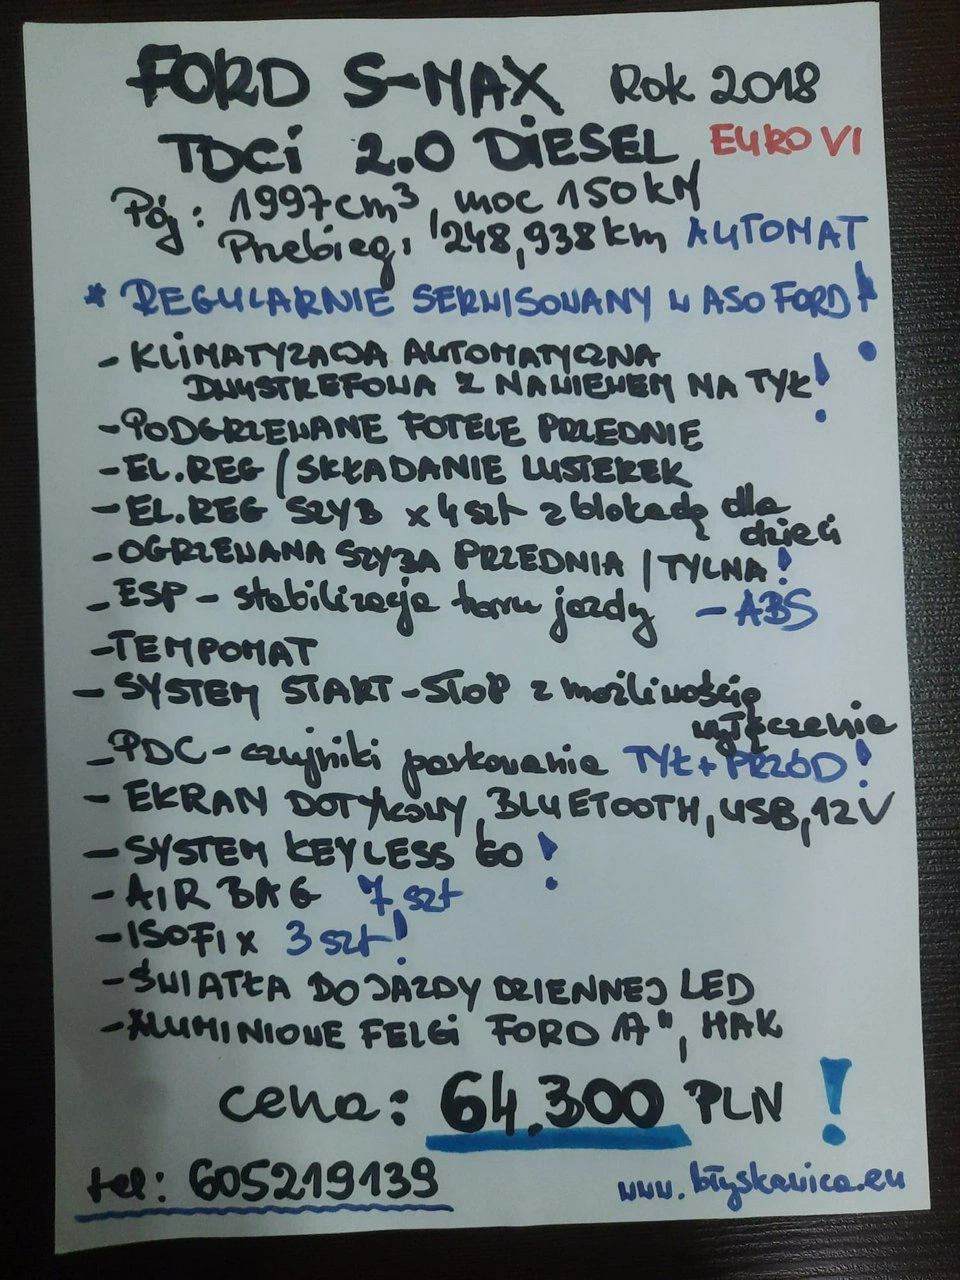 FORD S-MAX Rok 2018
TDCi 2.0 DiESEL, EURO VI
Poj: 1997cm³, moc 150kM
Przebieg: 248,938km AUTOMAT
* REGULARNIE SERWISOWANY W ASO FORD!
- KLIMATYZACJA AUTOMATYCZNA
DWUSTREFOWA Z NAWIEWEM NA TYŁ!
- PODGRZEWANE FOTELE PRZEDNIE
- EL.REG / SKŁADANIE LUSTEREK
- EL.REG SZYB x 4szt z blokadą dla
dzieci
- OGRZEWANA SZYBA PRZEDNIA / TYLNA!
- ESP - stabilizacja toru jazdy - ABS
- TEMPOMAT
- SYSTEM START-STOP z możliwością
wyłączenia
- PDC - czujniki parkowania TYŁ + PRZÓD!
- EKRAN DOTYKOWY, BLUETOOTH, USB, 12V
- SYSTEM KEYLESS GO!
- AIR BAG 7 szt
- ISOFIX 3 szt!
- ŚWIATŁA DO JAZDY DZIENNEJ LED
- ALUMINIOWE FELGI FORD 17", HAK
cena: 64.300 PLN!
tel: 605219139 www.błyskawica.eu